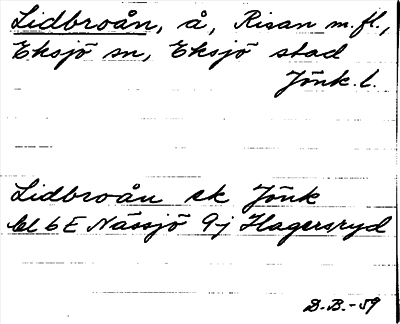 Lidbroån, å, Risan m.fl.,
Eksjö sn, Eksjö stad
Jönk. l.
Lidbroån ek Jönk
bl 6 E Nässjö 9-j Hagersryd
D.B.-59